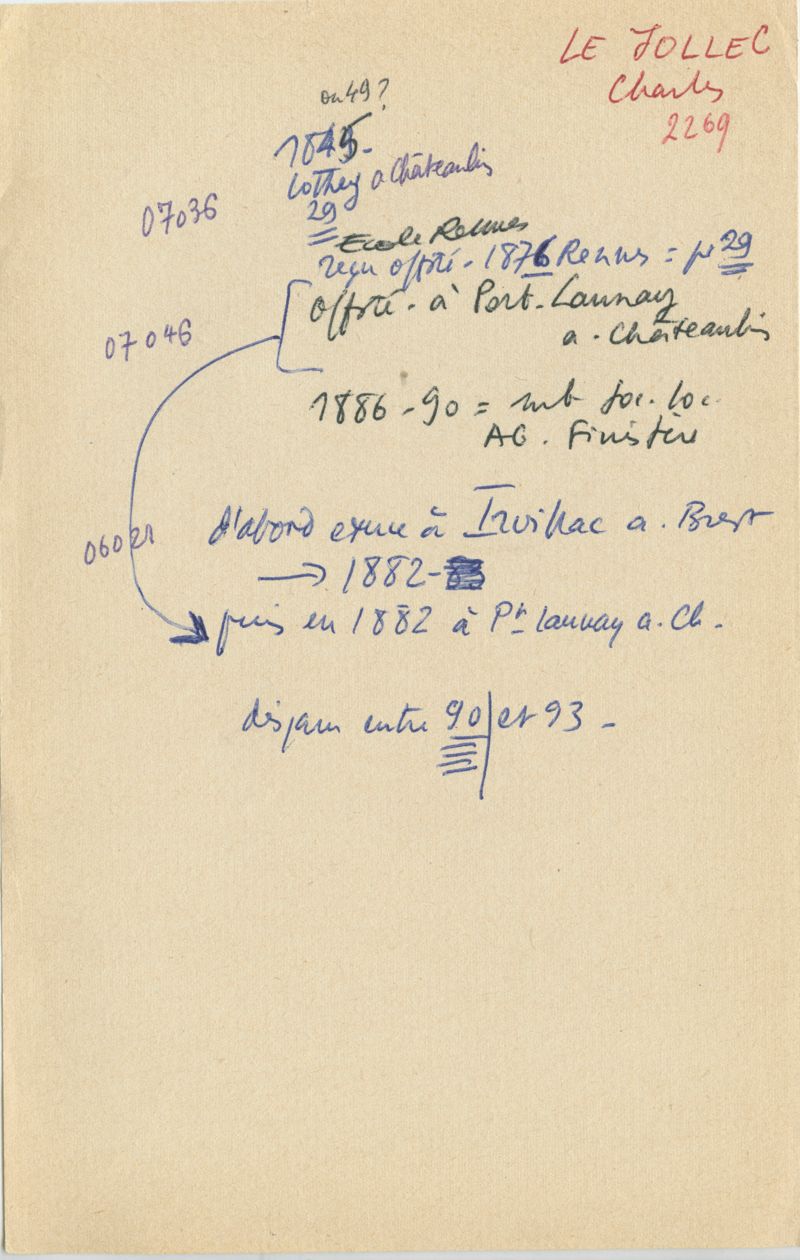 LE JOLLEC
Charles
2269
ou 49 ?
1845 -
Lothey a Châteaulin
07036
29
Ecole Rennes
reçu offté - 1876 Rennes = pr 29
offté - à Port-Launay
a. Châteaulin
07046
1886-90 = mb soc. loc.
AG. Finistère
d'abord exerce à Irvillac a. Brest
06021
→ 1882-
puis en 1882 à Pt Launay a. Ch.
disparu entre 90 et 93 -